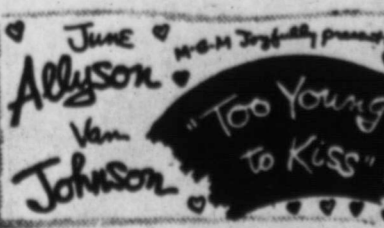 June
Allyson
Van
Johnson
M-G-M Joyfully present
"Too Young
to Kiss"